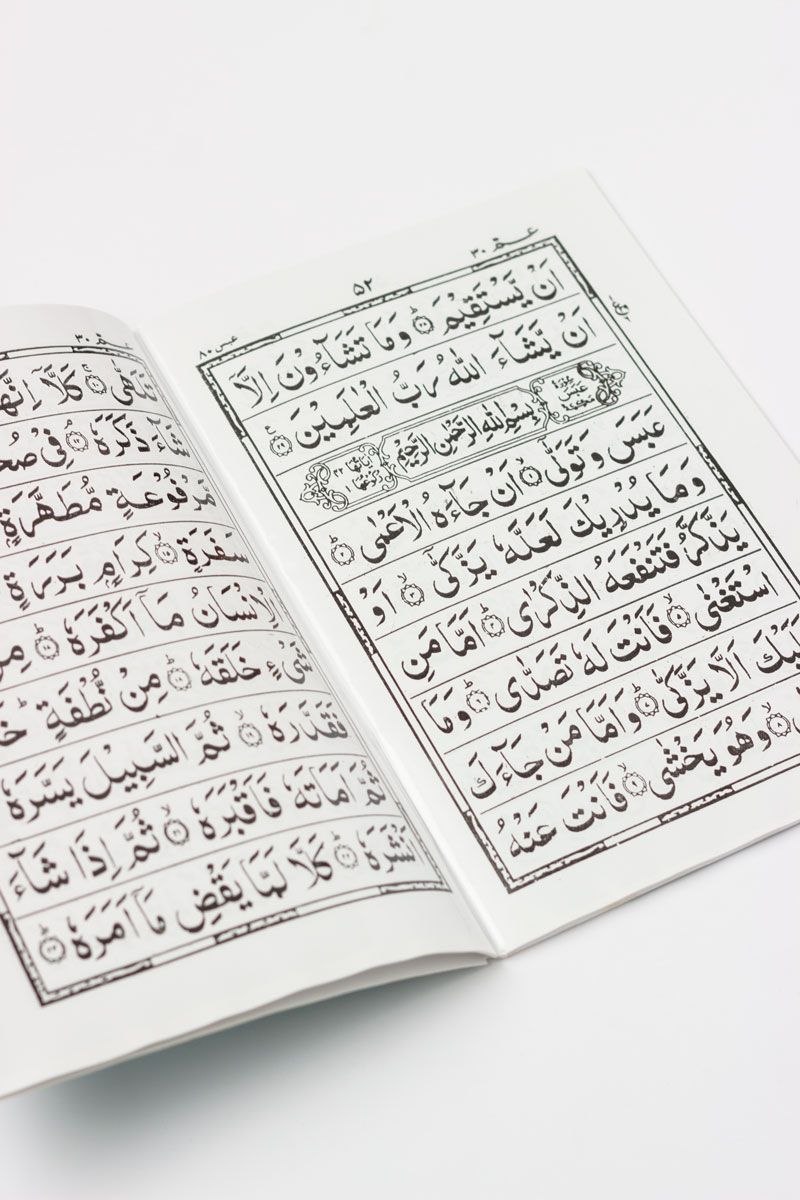 عـمّ ٣٠
٥٢
عبس ٨٠
اَنْ يَّسْتَقِيْمَ ۲۸ وَمَا تَشَآءُوْنَ اِلَّآ
اَنْ يَّشَآءَ اللّٰهُ رَبُّ الْعٰلَمِيْنَ ۲۹
سورة عبس مكية بِسْمِ اللهِ الرَّحْمٰنِ الرَّحِيْمِ اياتها ٤٢ ركوعها ١
عَبَسَ وَتَوَلّٰٓى ۱ اَنْ جَآءَهُ الْاَعْمٰى ۲
وَمَا يُدْرِيْكَ لَعَلَّهٗ يَزَّكّٰٓى ۳ اَوْ
يَذَّكَّرُ فَتَنْفَعَهُ الذِّكْرٰى ۴ اَمَّا مَنِ
اسْتَغْنٰى ۵ فَاَنْتَ لَهٗ تَصَدّٰى ۶ وَمَا
لَيْكَ اَلَّا يَزَّكّٰى ۷ وَاَمَّا مَنْ جَآءَكَ
۸ وَهُوَ يَخْشٰى ۹ فَاَنْتَ عَنْهُ
عـمّ ٣٠
تَلَهّٰى ۱۰ كَلَّآ اِنَّهَا
شَآءَ ذَكَرَهٗ ۱۲ فِیْ
مَّرْفُوْعَةٍ مُّطَهَّرَةٍ
سَفَرَةٍ ۱۵ كِرَامٍ بَرَرَةٍ
الْاِنْسَانُ مَآ اَكْفَرَهٗ ۱۷ مِنْ
شَیْءٍ خَلَقَهٗ ۱۸ مِنْ نُّطْفَةٍ
فَقَدَّرَهٗ ۱۹ ثُمَّ السَّبِيْلَ يَسَّرَهٗ
ثُمَّ اَمَاتَهٗ فَاَقْبَرَهٗ ۲۱ ثُمَّ اِذَا شَآءَ
اَنْشَرَهٗ ۲۲ كَلَّا لَمَّا يَقْضِ مَآ اَمَرَهٗ ۲۳